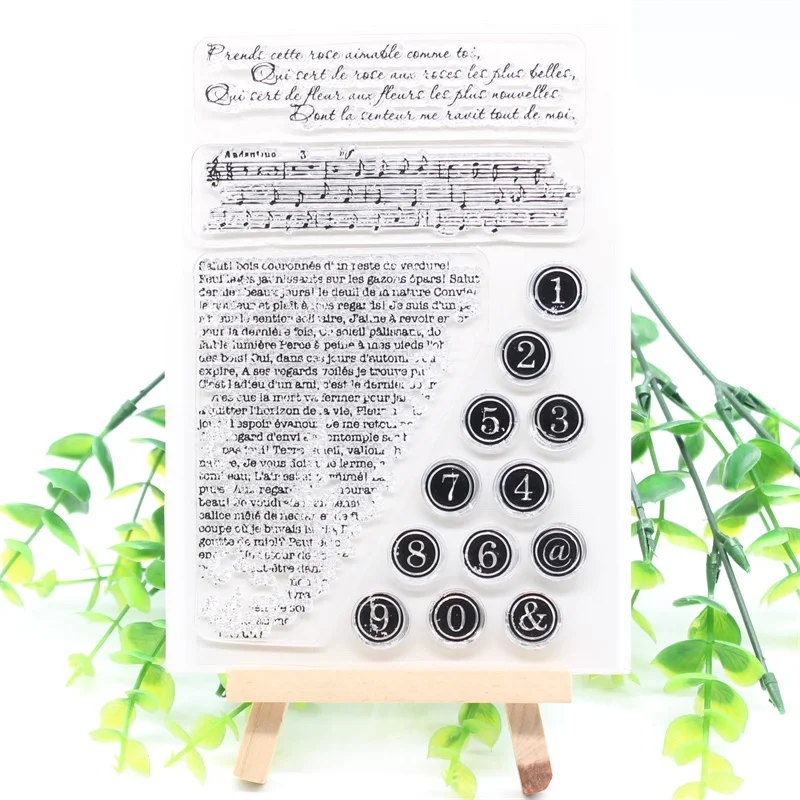 Prends cette rose aimable comme toi,
Qui sert de rose aux roses les plus belles,
Qui sert de fleur aux fleurs les plus nouvelles
Dont la senteur me ravit tout de moi.
Andantino 3 mf
Salut! bois couronnés d'un reste de verdure!
Feuillages jaunissants sur les gazons épars! Salut
derniers beaux jours! le deuil de la nature Convie
la douleur et plaît à mes regards! Je suis d'un pa
le sentier solitaire, J'aime à revoir en
pour la dernière fois, Ce soleil pâlissant, do
faible lumière Perce à peine à mes pieds l'ob
des bois! Oui, dans ces jours d'autom
expire, A ses regards voilés je trouve plu
C'est l'adieu d'un ami, c'est le dernier
que la mort va fermer pour ja
quitter l'horizon de la vie, Pleur
l'espoir évanoui Je me retou
regard d'envi contemple se
Terre, soleil, vallon
nature, Je vous dois une larme,
tombeau; L'air est parfumé!
pure! Aux regar mourant
beau! Je voudrais
calice mêlé de nectar et de
coupe où je buvais la
goutte de miel? Peut
de
peut-être dan
1
2
5 3
7 4
8 6 @
9 0 &